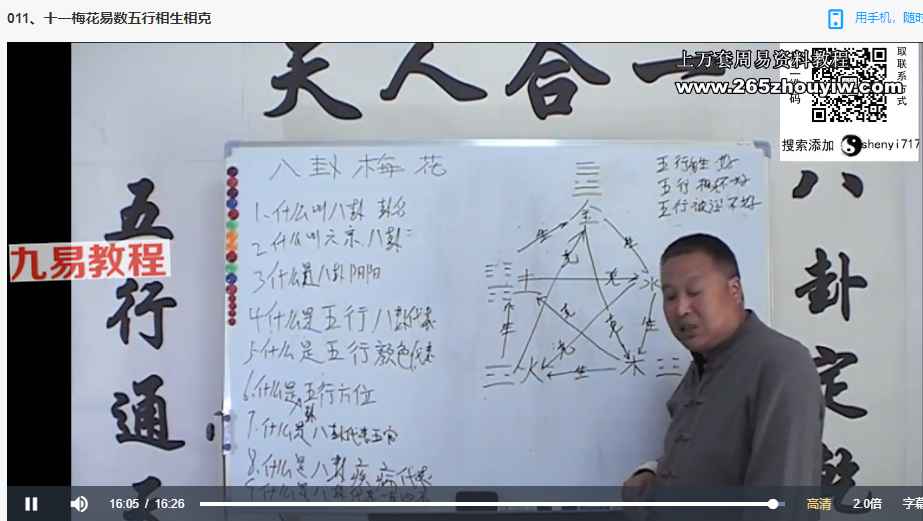 011、十一梅花易数五行相生相克
用手机，随时
天人合一
上万套周易资料教程
www.265zhouyiw.com
取联系方式
二维码
搜索添加 shenyi717
五行通
九易教程
八卦定乾
八卦梅花
1.什么叫八卦 卦名
2.什么叫六亲八卦
3什么是八卦阴阳
4什么是五行八卦代表
5.什么是五行颜色代表
6.什么是五行方位
7.什么是八卦代表五官
8.什么是八卦疾病代表
五行相生好
五行相不好
五行被 不好
金
生 生
克
土 克 水
生 克 克 生
克
火 生 木
16:05 / 16:26
高清 2.0倍 字幕